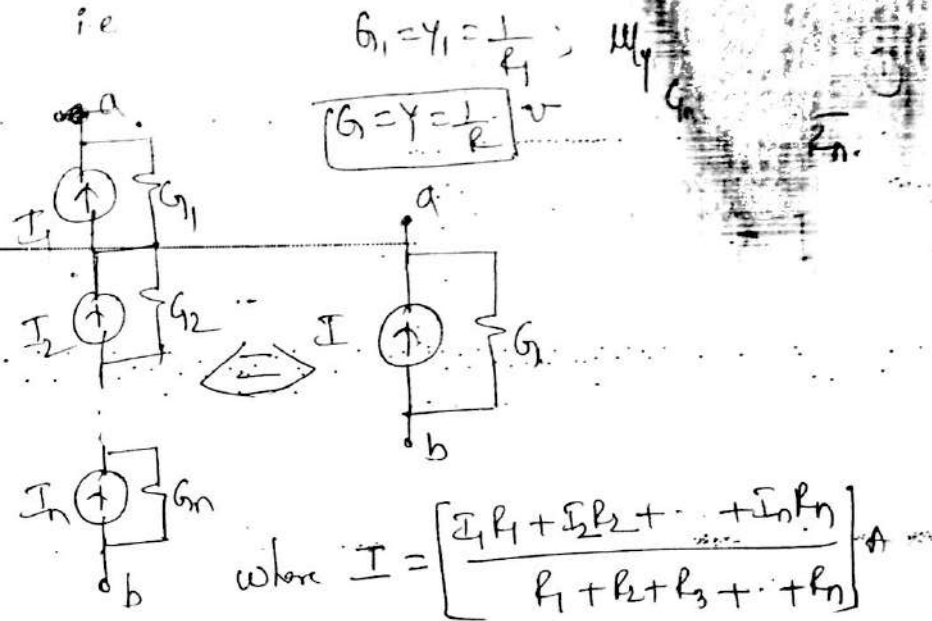 i.e
G₁ = Y₁ = 1/R₁ ; |||ly Gₙ
Rₙ.
G = Y = 1/R ℧
a
I₁ G₁
I₂ G₂
In Gn
b
a
I G
b
where I = [(I₁R₁ + I₂R₂ + ... + InRn)/(R₁ + R₂ + R₃ + ... + Rn)] A